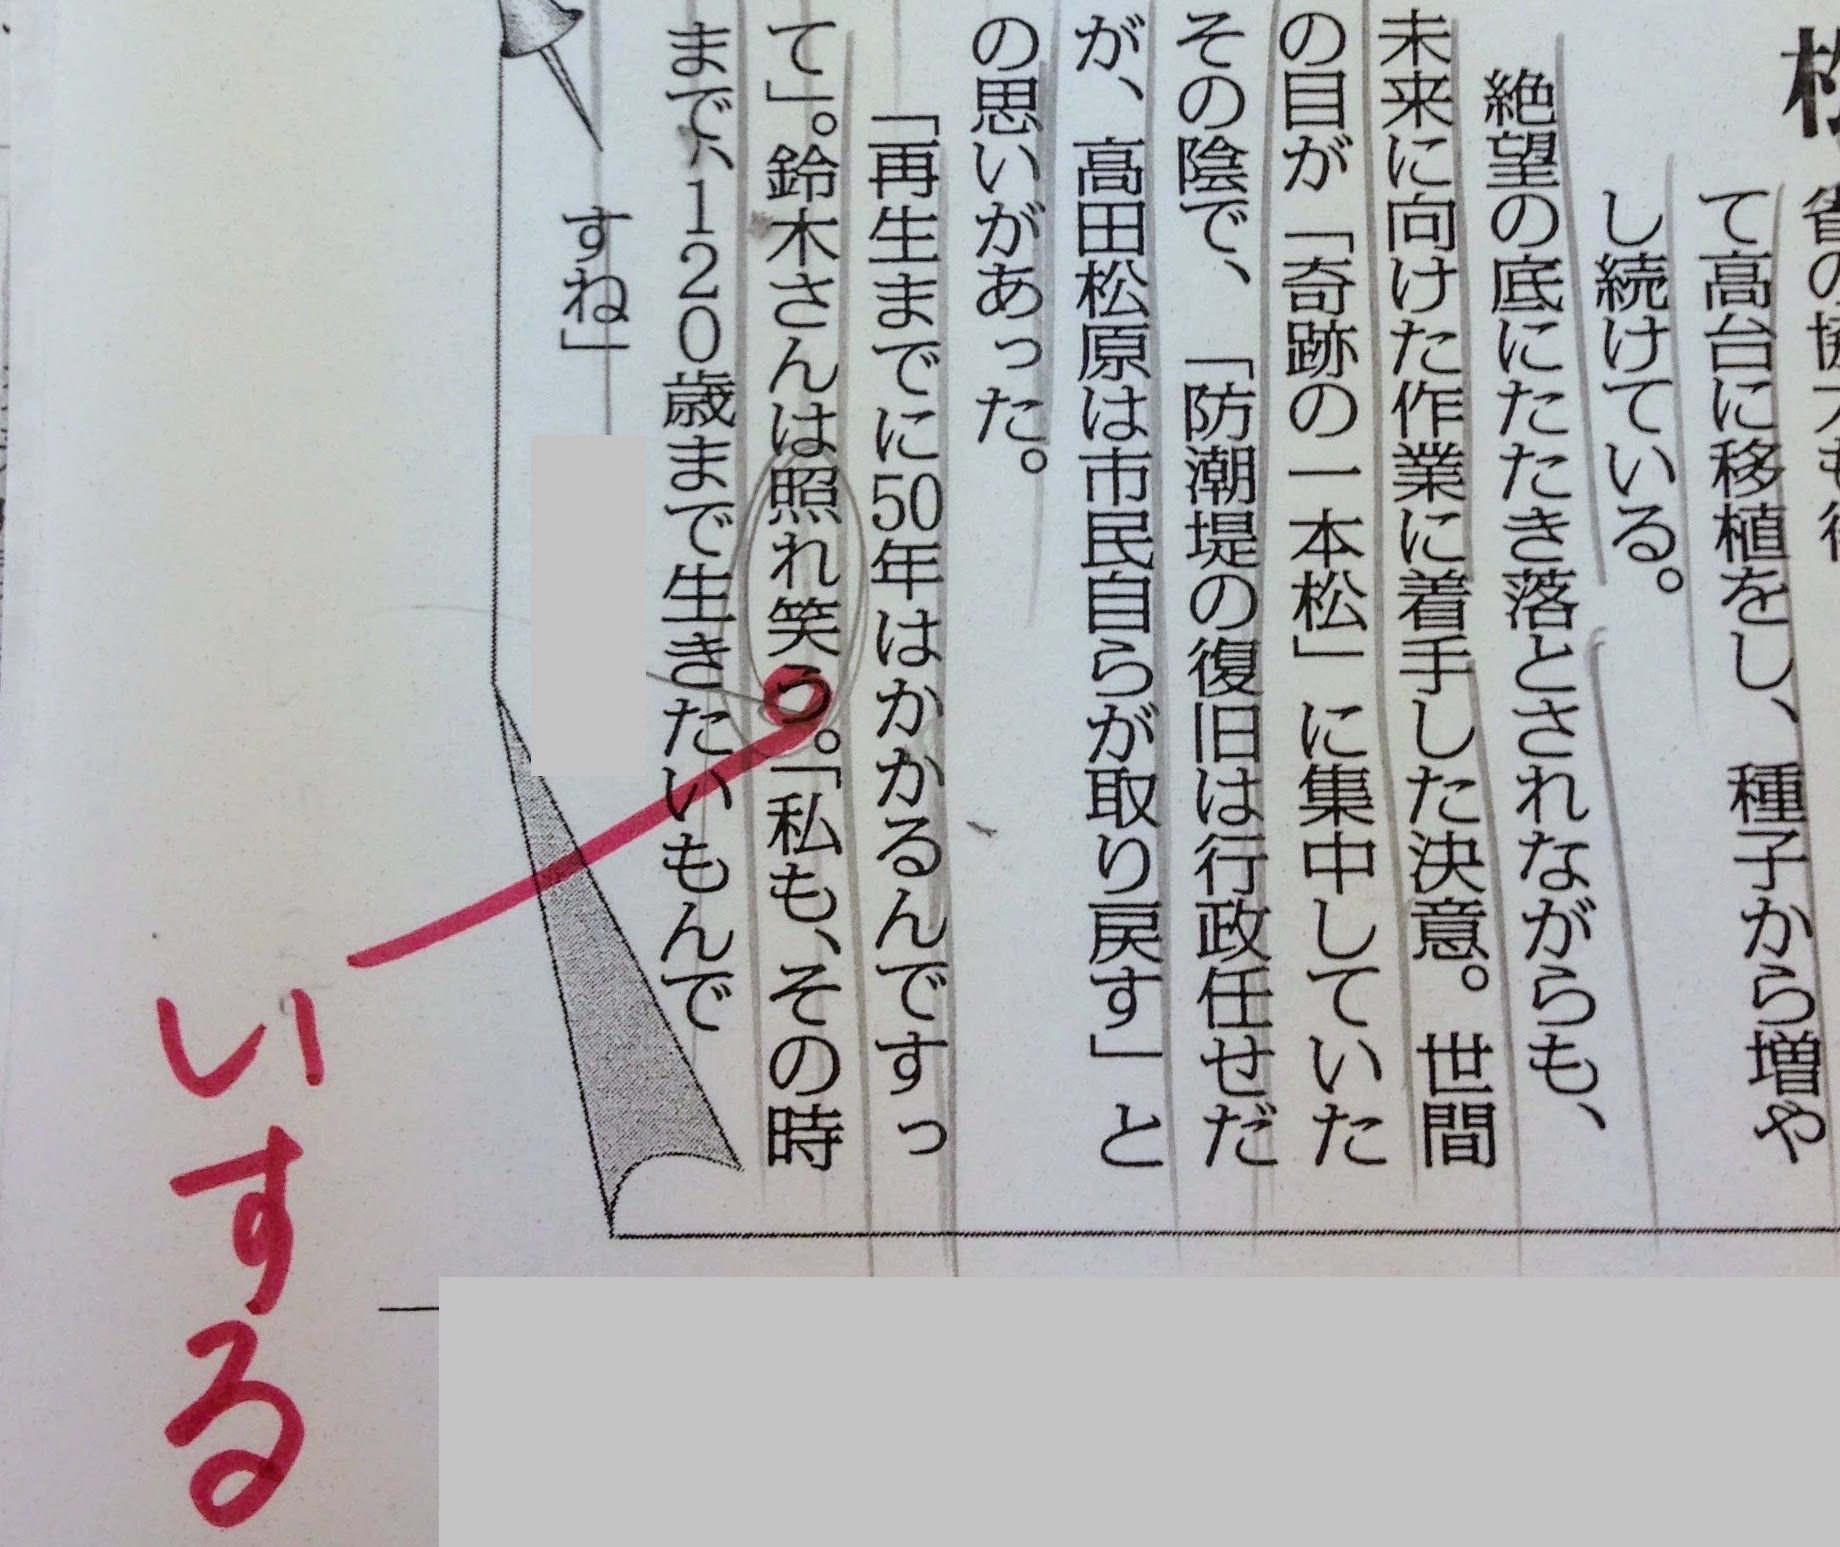 て高台に移植をし、種子から増や
し続けている。
絶望の底にたたき落とされながらも、
未来に向けた作業に着手した決意。世間
の目が「奇跡の一本松」に集中していた
その陰で、「防潮堤の復旧は行政任せだ
が、高田松原は市民自らが取り戻す」と
の思いがあった。
「再生までに50年はかかるんですっ
て」。鈴木さんは照れ笑う。「私も、その時
まで、120歳まで生きたいもんで
すね」
いする